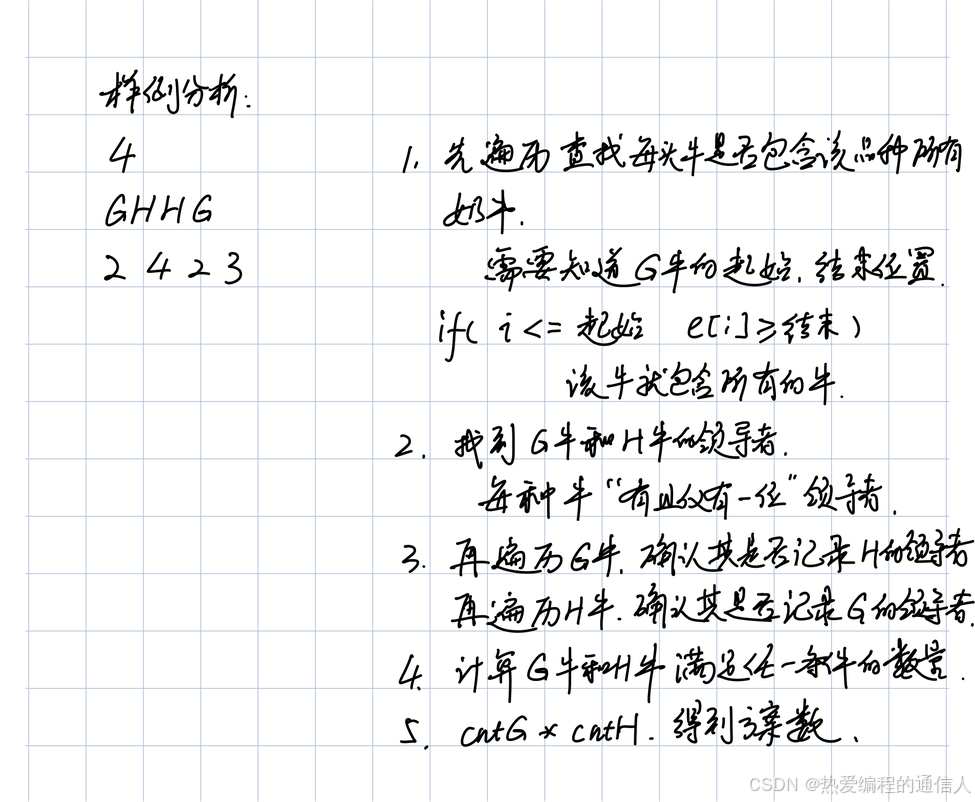 样例分析:
4
GHHG
2 4 2 3
1. 先遍历查找每头牛是否包含该品种所有
奶牛.
需要知道G牛的起始.结束位置.
if( i <= 起始 e[i]≥结束)
该牛就包含所有的牛.
2. 找到G牛和H牛的领导者.
每种牛“有且仅有一位”领导者.
3. 再遍历G牛.确认其是否记录H的领导者
再遍历H牛.确认其是否记录G的领导者.
4. 计算G牛和H牛满足任一条件的数量.
5. cntG * cntH. 得到方案数.
CSDN @热爱编程的通信人